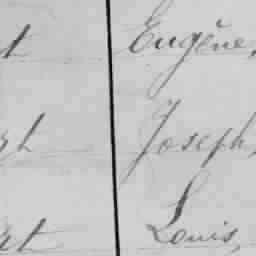 Eugène,
Joseph,
Louis,